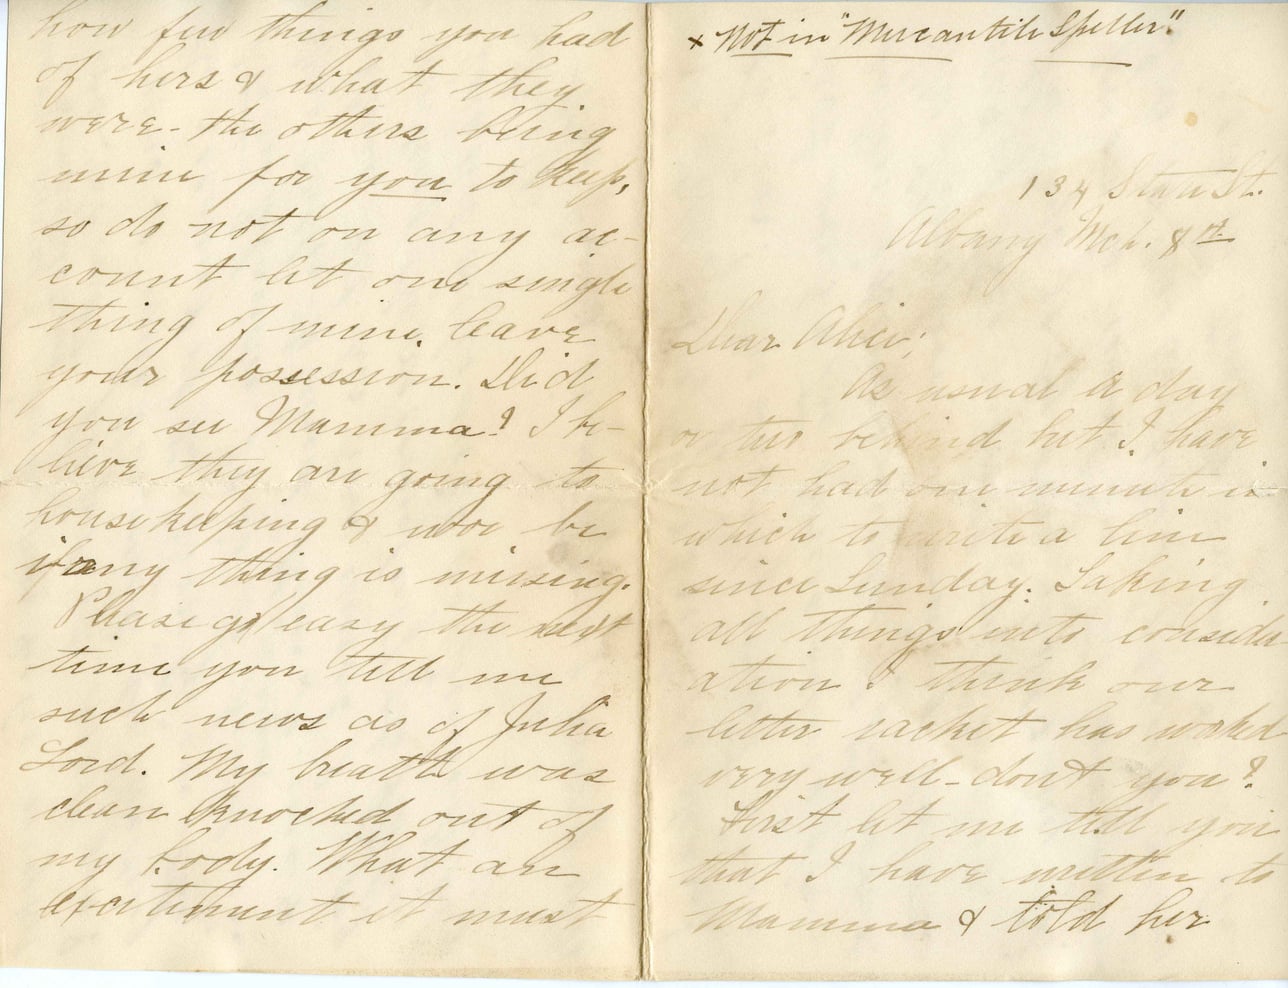 x Not in "Mercantile Speller."
134 State St.
Albany Mch. 8th
Dear Alice;
As usual a day
or two behind but I have
not had one minute in
which to write a line
since Sunday. Taking
all things into consider
ation I think our
letter racket has worked
very well - don't you?
First let me tell you
that I have written to
Mamma & told her
how few things you had
of hers & what they
were - the others being
mine for you to keep,
so do not on any ac-
count let one single
thing of mine leave
your possession. Did
you see Mamma? I be-
lieve they are going to
housekeeping & woe be
if any thing is missing.
Please go easy the next
time you tell me
such news as of Julia
Lord. My breath was
clean knocked out of
my body. What an
excitement it must